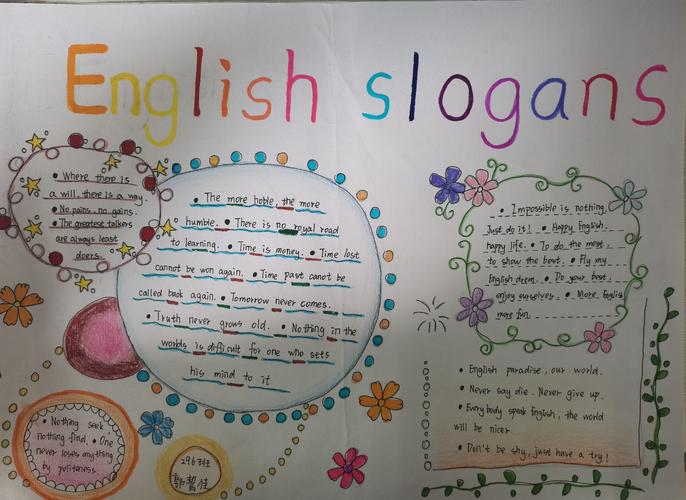 English slogans
• Where there is
a will, there is a way.
• No pains, no gains.
• The greatest talkers
are always least
doers.
• The more noble, the more
humble. • There is no royal road
to learning. • Time is money. • Time lost
cannot be won again. • Time past canot be
called back again. • Tomorrow never comes.
• Truth never grows old. • Nothing in the
worlds is difficult for one who sets
his mind to it
• Impossible is nothing.
Just do it! • Happy English,
happy life. • To do the most,
to show the best. • Fly my
English dream. • Do your best,
enjoy ourselves. • More English
more fun.
• English paradise, our world.
• Never say die. Never give up.
• Everybody speak English, the world
will be nicer
• Don't be shy, just have a try!
• Nothing seek
nothing find. • One
never loses anything
by politeness
296班
郭
佳